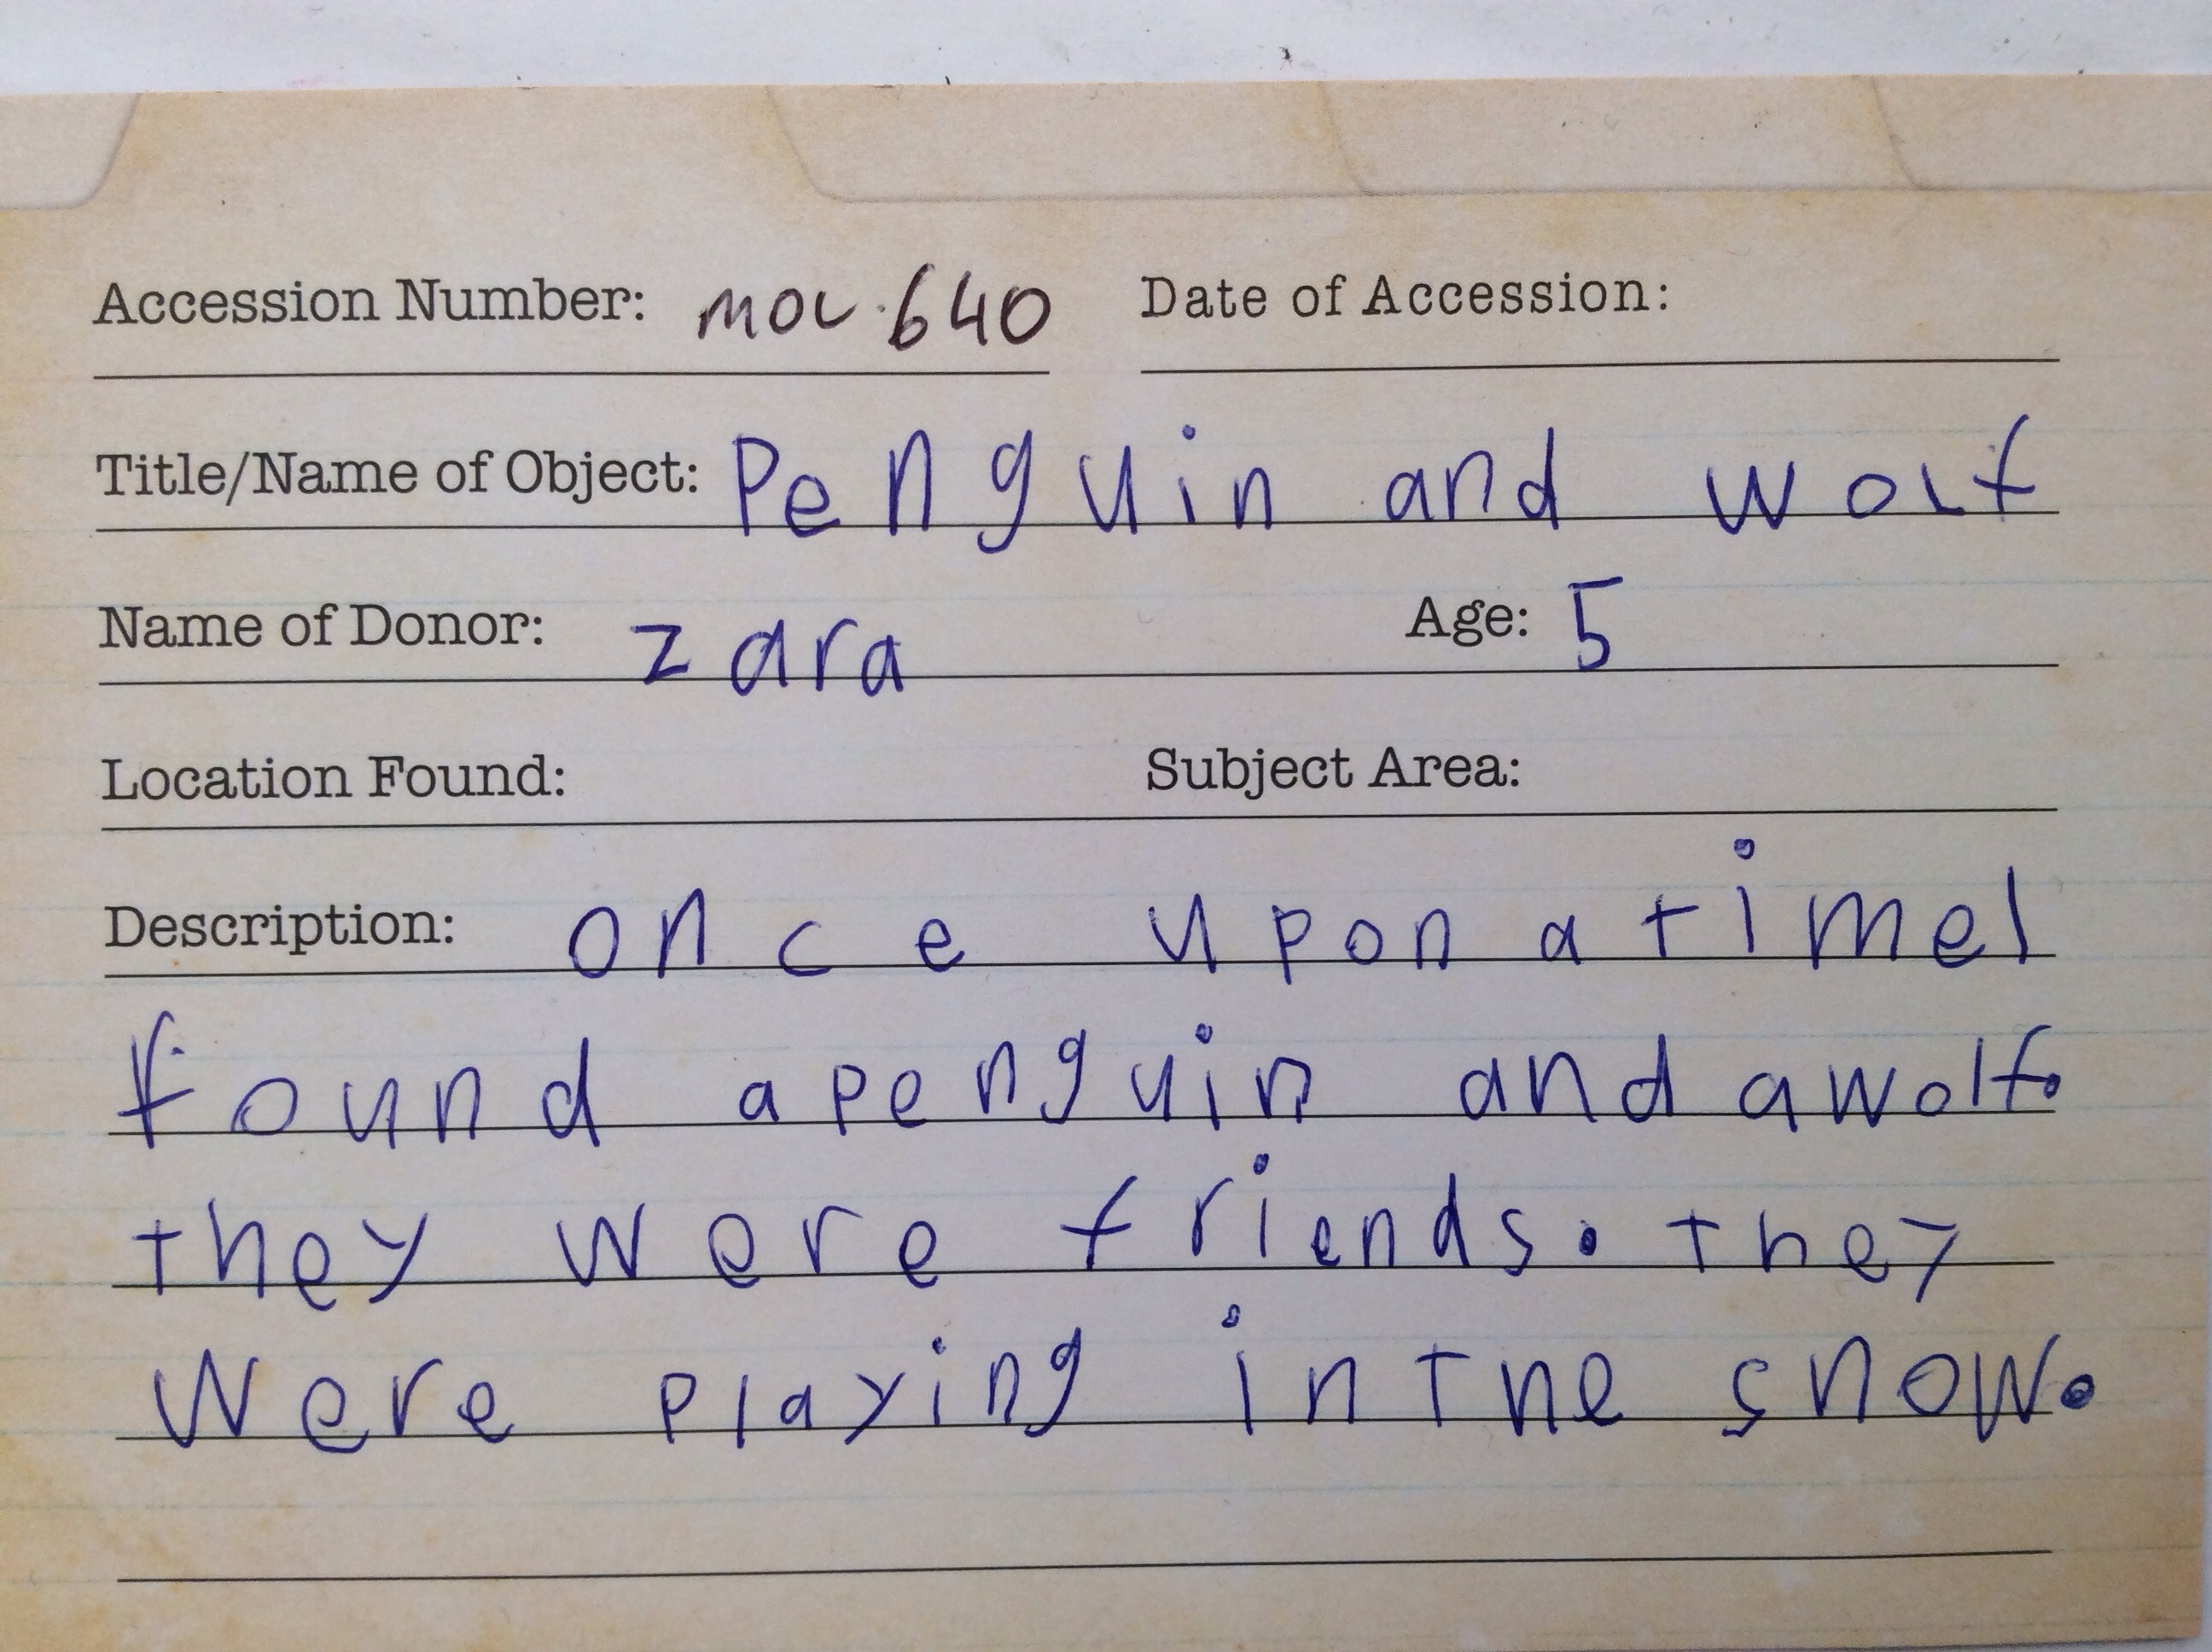 Accession Number: MOL.640 Date of Accession:
Title/Name of Object: Penguin and wolf
Name of Donor: zara Age: 5
Location Found: Subject Area:
Description: once upon a time I
found a penguin and a wolf.
they were friends. they
were playing in the snow.